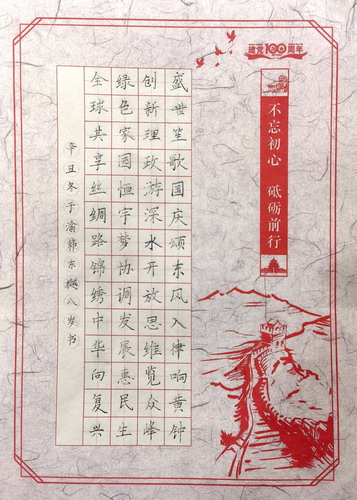 建党100周年
不忘初心 砥砺前行
盛世笙歌国庆颂东风入律响黄钟
创新理政游深水开放思维览众峰
绿色家园恒宇梦协调发展惠民生
全球共享丝绸路锦绣中华向复兴
辛丑冬于渝韩东八岁书